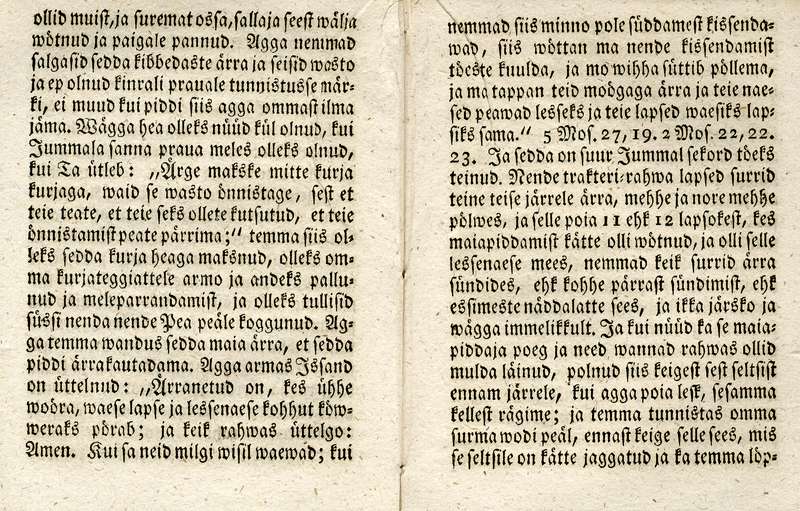 ollid muist, ja suremat ossa, sallaja seest wälja
wötnud ja paigale pannud. Agga nemmad
salgasid sedda kibbedaste ärra ja seisid wasto
ja ep olnud kinrali prauale tunnistusse mär-
ki, ei muud kui piddi siis agga ommast ilma
jäma. Wägga hea olleks nüüd kül olnud, kui
Jummala sanna praua meles olleks olnud,
kui Ta ütleb: „Ärge makske mitte kurja
kurjaga, waid se wasto önnistage, sest et
teie teate, et teie seks ollete kutsutud, et teie
önnistamist peate pärrima;“ temma siis ol-
leks sedda kurja heaga maksnud, olleks om-
ma kurjateggiattele armo ja andeks pallu-
nud ja meleparrandamist, ja olleks tullisid
süssi nenda nende Pea peäle koggunud. Ag-
ga temma wandus sedda maia ärra, et sedda
piddi ärrakautadama. Agga armas Issand
on üttelnud: „Ärranetud on, kes ühhe
woöra, waese lapse ja lessenaese kohhut köw-
weraks pörab; ja keik rahwas üttelgo:
Amen. Kui sa neid milgi wisil waewad; kui
nemmad siis minno pole süddamest kissenda-
wad, siis wöttan ma nende kissendamist
töeste kuulda, ja mo wihha süttib pöllema,
ja ma tappan teid moögaga ärra ja teie nae-
sed peawad lesseks ja teie lapsed waesiks lap-
siks sama.“ 5 Mos. 27, 19. 2 Mos. 22, 22.
23. Ja sedda on suur Jummal sekord töeks
teinud. Nende trakteri-rahwa lapsed surrid
teine teise järrele ärra, mehhe ja nore mehhe
pölwes, ja selle poia 11 ehk 12 lapsokest, kes
maiapiddamist kätte olli wötnud, ja olli selle
lessenaese mees, nemmad keik surrid ärra
sündides, ehk kohhe pärrast sündimist, ehk
essimeste näddalatte sees, ja ikka järsko ja
wägga immelikkult. Ja kui nüüd ka se maia-
piddaja poeg ja need wannad rahwas ollid
mulda läinud, polnud siis keigest sest seltsist
ennam järrele, kui agga poia lesk, sesamma
kellest rägime; ja temma tunnistas omma
surma wodi peäl, ennast keige selle sees, mis
se seltsile on kätte jaggatud ja ka temma löp-